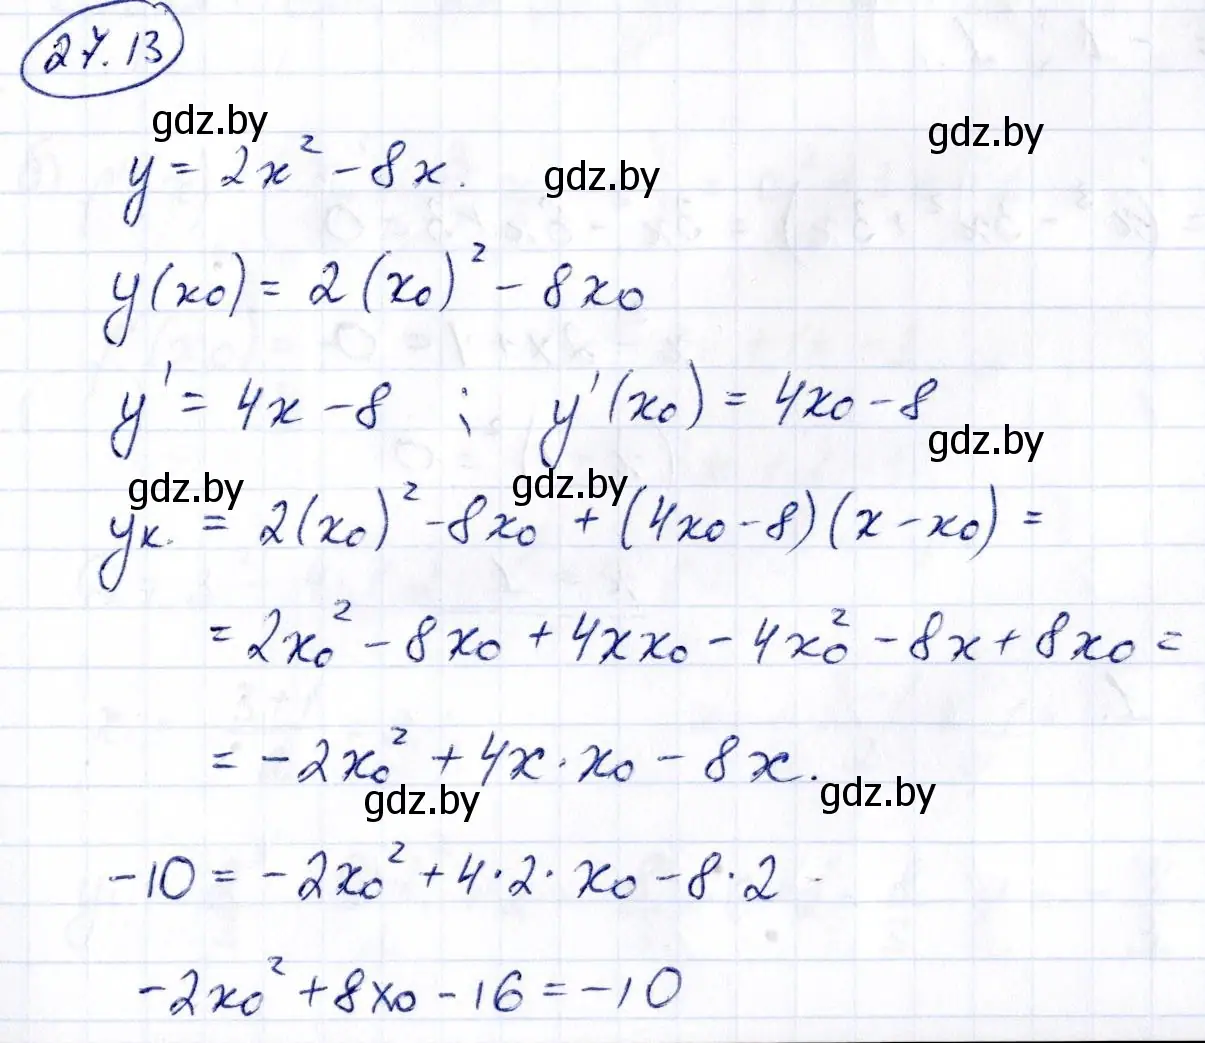 27.13
gdz.by
gdz.by
y = 2x² - 8x.
gdz.by
y(x₀) = 2(x₀)² - 8x₀
y' = 4x - 8 ; y'(x₀) = 4x₀ - 8
gdz.by
gdz.by
gdz.by
yк. = 2(x₀)² - 8x₀ + (4x₀ - 8)(x - x₀) =
= 2x₀² - 8x₀ + 4xx₀ - 4x₀² - 8x + 8x₀ =
= -2x₀² + 4x · x₀ - 8x.
gdz.by
gdz.by
-10 = -2x₀² + 4 · 2 · x₀ - 8 · 2
-2x₀² + 8x₀ - 16 = -10